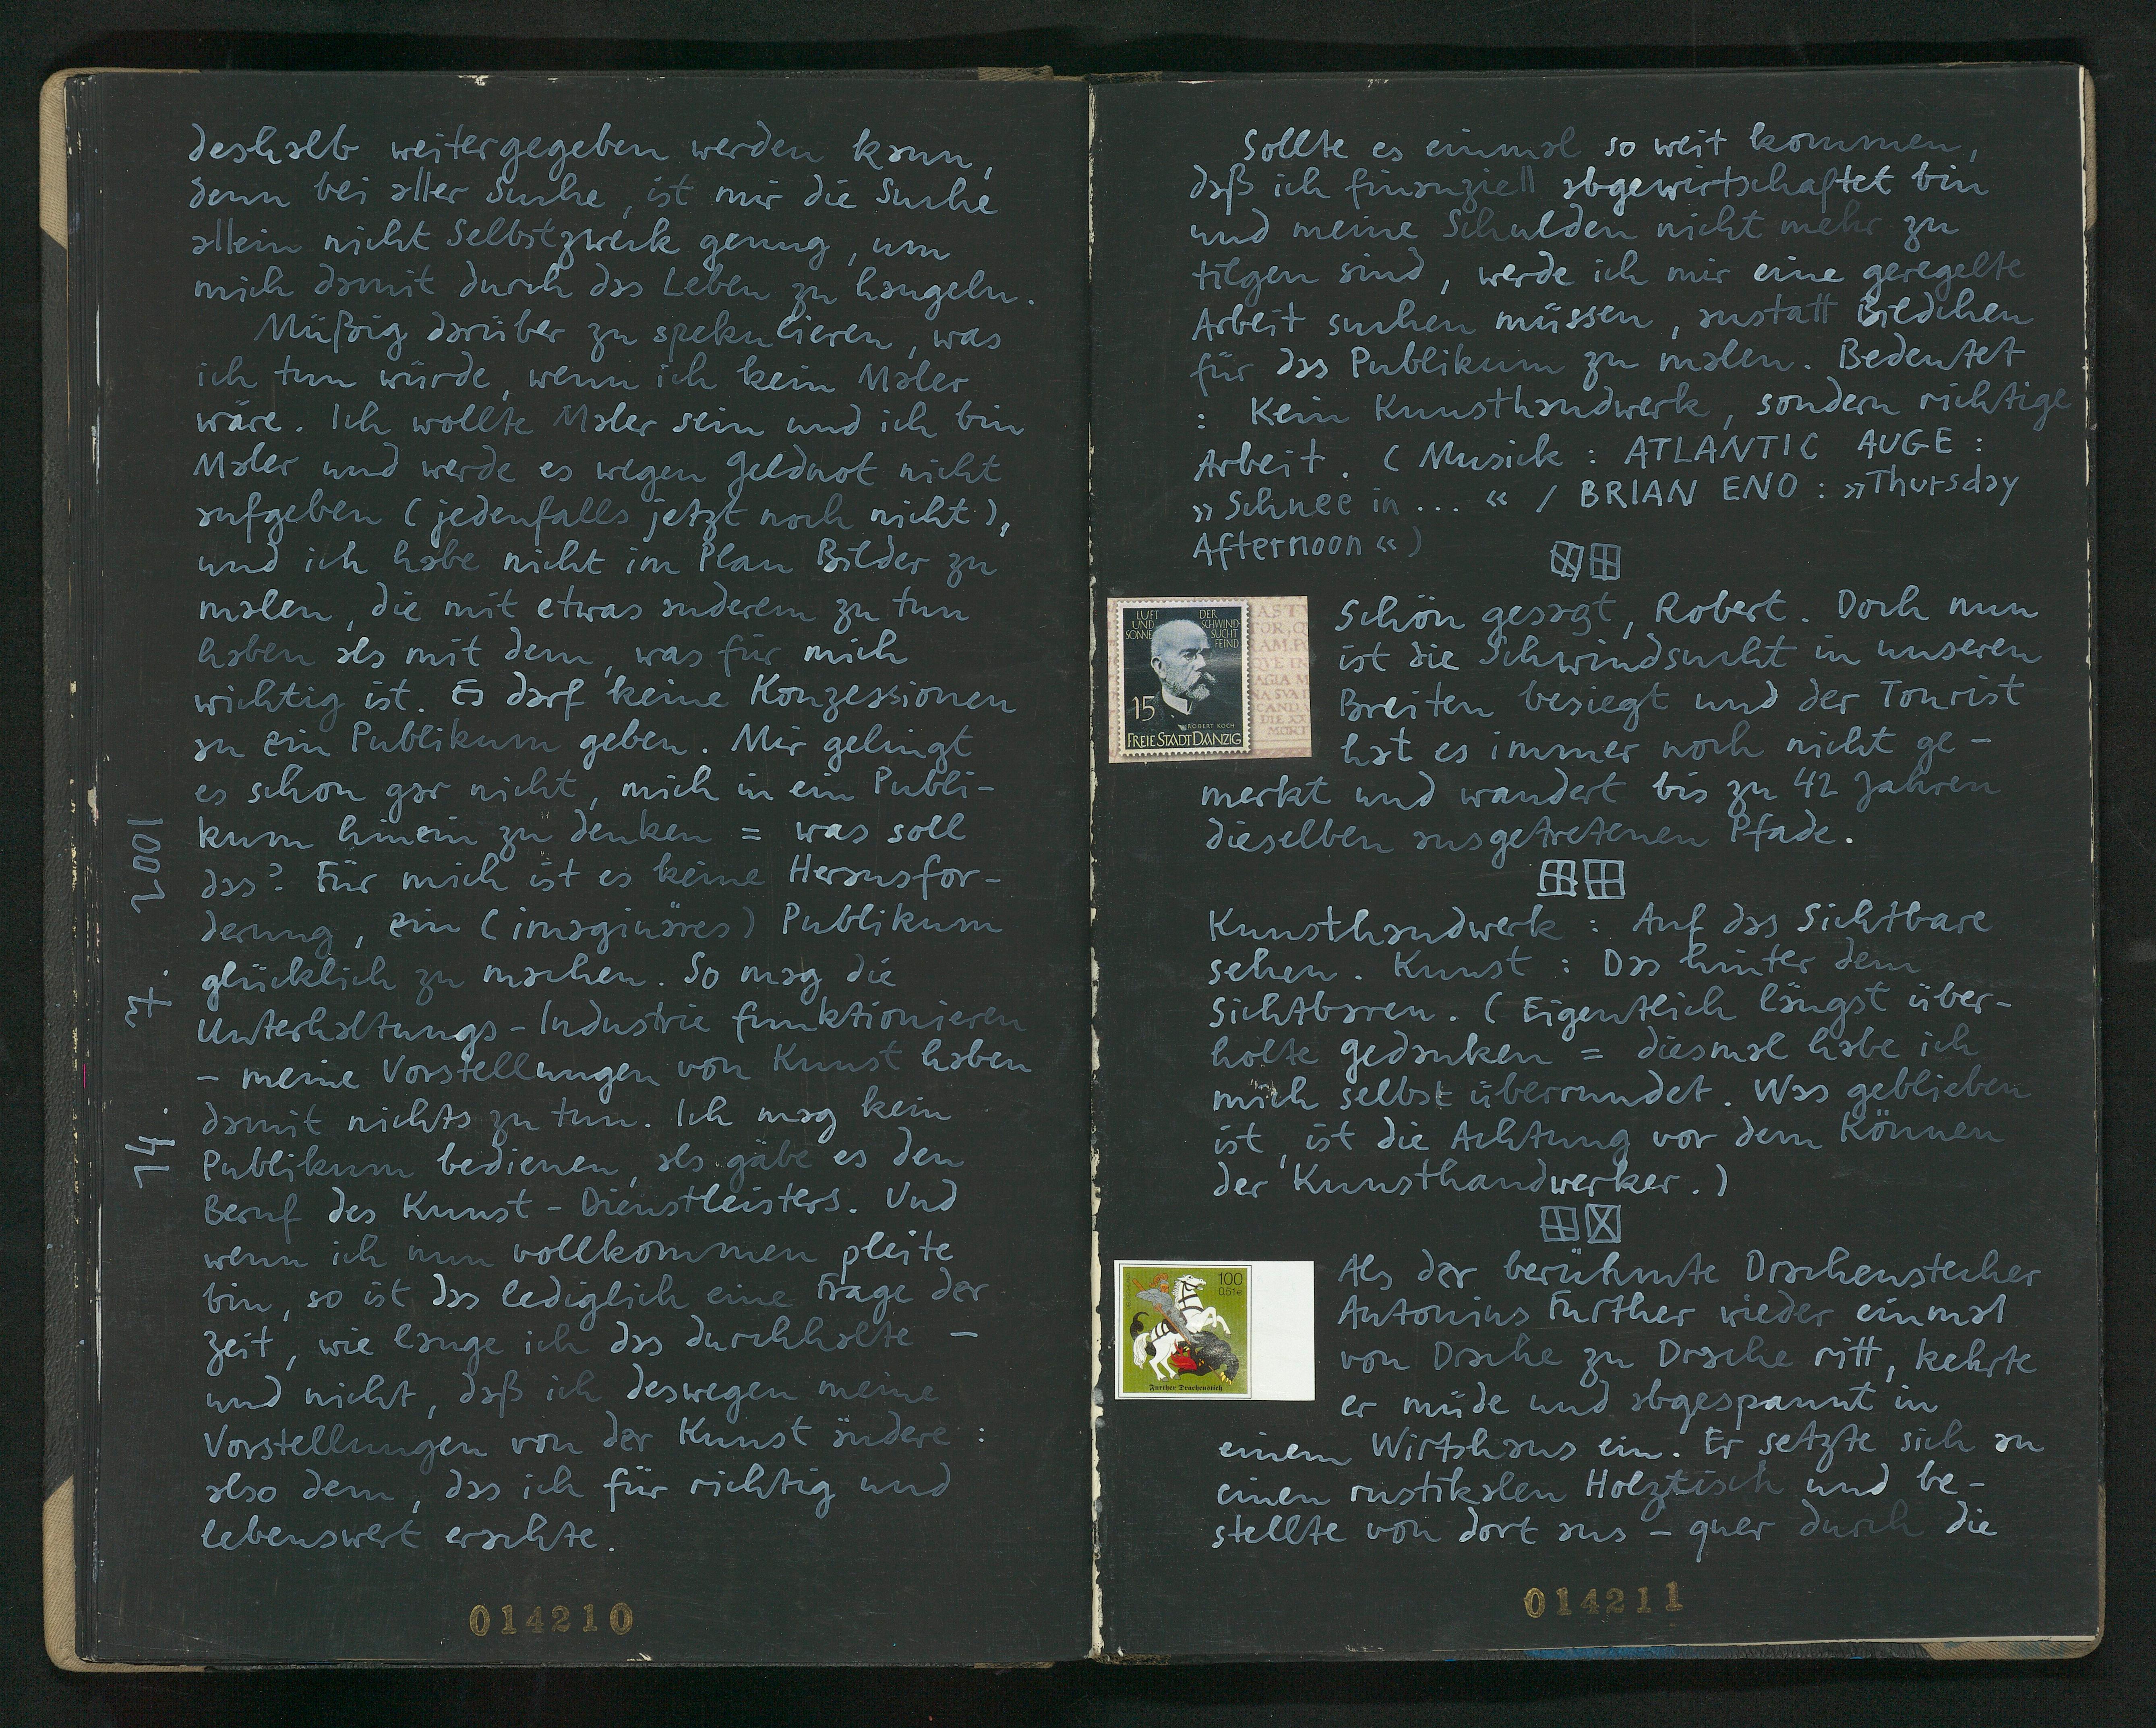 deshalb weitergegeben werden kann,
denn bei aller Suche, ist mir die Suche
allein nicht Selbstzweck genug, um
mich damit durch das Leben zu hangeln.
Müßig darüber zu spekulieren, was
ich tun würde, wenn ich kein Maler
wäre. Ich wollte Maler sein und ich bin
Maler und werde es wegen Geldnot nicht
aufgeben (jedenfalls jetzt noch nicht),
und ich habe nicht im Plan Bilder zu
malen, die mit etwas anderem zu tun
haben als mit dem, was für mich
wichtig ist. Es darf keine Konzessionen
an ein Publikum geben. Mir gelingt
es schon gar nicht, mich in ein Publi-
kum hinein zu denken = was soll
das? Für mich ist es keine Herausfor-
derung, ein (imaginäres) Publikum
glücklich zu machen. So mag die
Unterhaltungs-Industrie funktionieren
- meine Vorstellungen von Kunst haben
damit nichts zu tun. Ich mag kein
Publikum bedienen, als gäbe es den
Beruf des Kunst-Dienstleisters. Und
wenn ich nun vollkommen pleite
bin, so ist das lediglich eine Frage der
Zeit, wie lange ich das durchhalte –
und nicht, daß ich deswegen meine
Vorstellungen von der Kunst ändere :
also dem, das ich für richtig und
lebenswert erachte.
14. 7. 2001
014210
Sollte es einmal so weit kommen,
daß ich finanziell abgewirtschaftet bin
und meine Schulden nicht mehr zu
tilgen sind, werde ich mir eine geregelte
Arbeit suchen müssen, anstatt Bildchen
für das Publikum zu malen. Bedeutet
: Kein Kunsthandwerk, sondern richtige
Arbeit. (Musick : ATLANTIC AUGE :
»Schnee in ... « / BRIAN ENO : »Thursday
Afternoon«)
LUFT UND SONNE
DER SCHWIND-
SUCHT FEIND
15
ROBERT KOCH
FREIE STADT DANZIG
Schön gesagt, Robert. Doch nun
ist die Schwindsucht in unseren
Breiten besiegt und der Tourist
hat es immer noch nicht ge-
merkt und wandert bis zu 42 Jahren
dieselben ausgetretenen Pfade.
Kunsthandwerk : Auf das Sichtbare
sehen. Kunst : Das hinter dem
Sichtbaren. (Eigentlich längst über-
holte Gedanken = diesmal habe ich
mich selbst überrundet. Was geblieben
ist, ist die Achtung vor dem Können
der Kunsthandwerker.)
100
0,51€
Further Drachenstich
Als der berühmte Drachenstecher
Antonius Further wieder einmal
von Drache zu Drache ritt, kehrte
er müde und abgespannt in
einem Wirtshaus ein. Er setzte sich an
einen rustikalen Holztisch und be-
stellte von dort aus – quer durch die
014211